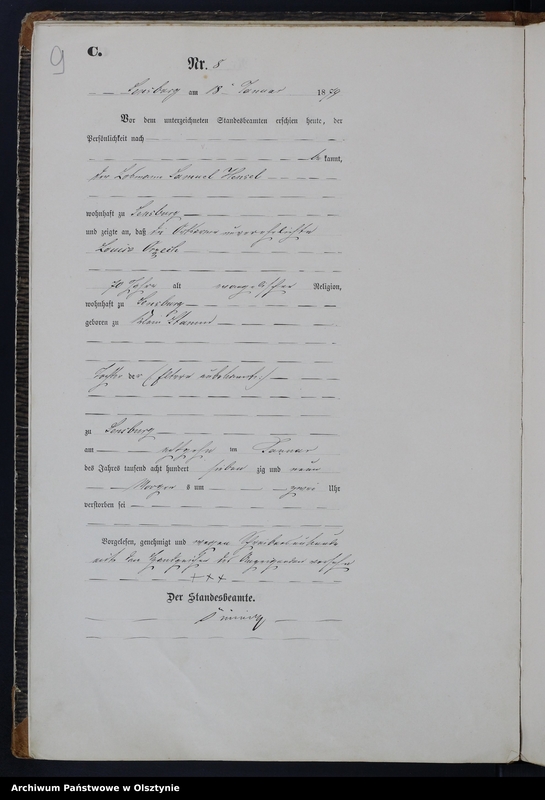 9
C.
Nr. 8
Sensburg am 18 Januar 1879
Vor dem unterzeichneten Standesbeamten erschien heute, der
Persönlichkeit nach
be kannt,
der Samuel Hensel
wohnhaft zu Sensburg
und zeigte an, daß die unverehelichte
Louise
70 Jahre alt evangelischer Religion,
wohnhaft zu Sensburg
geboren zu Klein Stamm
Tochter der (Eltern unbekannt)
zu Sensburg
am achtzehn ten Januar
des Jahres tausend acht hundert sieben zig und neun
Morgen s um zwei Uhr
verstorben sei
Vorgelesen, genehmigt und wegen Schreibensunkunde
mit den Handzeichen des Anzeigenden versehen
+++
Der Standesbeamte.
Archiwum Państwowe w Olsztynie